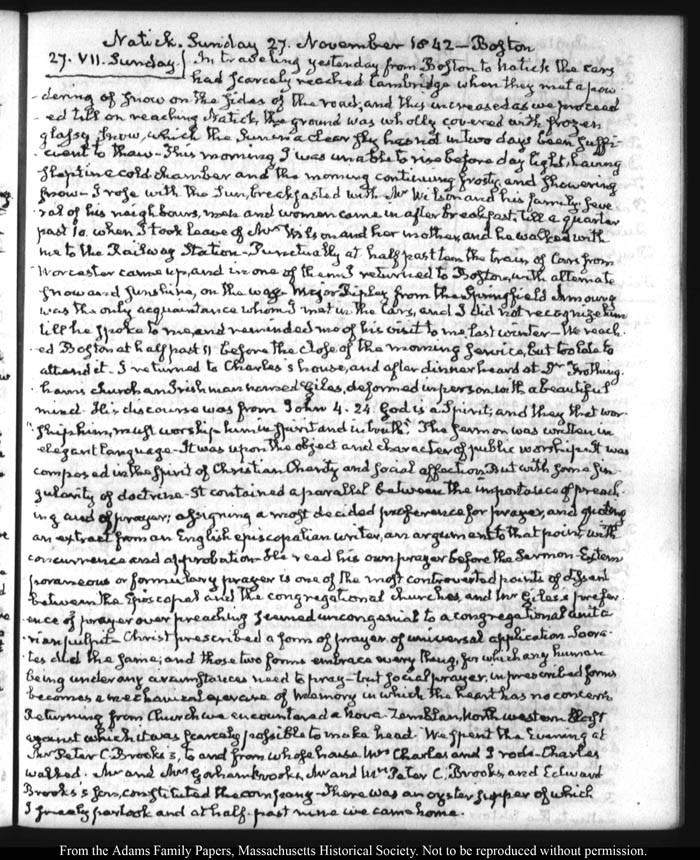 Natick. Sunday 27. November 1842 — Boston
27. VII. Sunday.} In traveling yesterday from Boston to Natick the cars
had scarcely reached Cambridge when they met a pow-
dering of snow on the sides of the road; and this increased as we proceed
ed till on reaching Natick, the ground was wholly covered with frozen
glassy snow, which the Sun in a clear sky has not in two days been suffi-
cient to thaw — This morning I was unable to rise before day light, having
slept in a cold chamber and the morning continuing frosty, and showering
snow — I rose with the Sun, breakfasted with Mr Wilson and his family, seve
ral of his neighbours, men and women came in after breakfast, till a quarter
past 10. when I took leave of Mrs Wilson and her mother, and he walked with
me to the Railway Station — Punctually at half past ten the train of cars from
Worcester came up, and in one of them I returned to Boston, with alternate
snow and sunshine, on the way. Major Ripley from the Springfield Armoury
was the only acquaintance whom I met in the cars, and I did not recognize him
till he spoke to me, and reminded me of his visit to me last winter — We reach
ed Boston at half past 11 before the close of the morning service, but too late to
attend it. I returned to Charles's house, and after dinner heard at Dr Frothing-
ham's church an Irishman named Giles, deformed in person with a beautiful
mind. His discourse was from John 4. 24. God is a Spirit; and they that wor-
"ship him, must worship him in spirit and in truth." The sermon was written in
elegant language — It was upon the object and character of public worship. It was
composed in the spirit of Christian Charity and social affection. But with some sin-
gularity of doctrine. It contained a parallel between the importance of preach-
ing and of prayer; assigning a most decided preference for prayer, and quoting
an extract from an English episcopalian writer, an argument to that point with
concurrence and approbation. He read his own prayer before the Sermon. Extem
poraneous or formulary prayer is one of the most controverted points of dissent
between the Episcopal and the congregational churches, and Mr Giles's prefer-
ence of prayer over preaching seemed uncongenial to a congregational unita-
rian pulpit — Christ prescribed a form of prayer of universal application. Socra-
tes did the same; and those two forms embrace every thing, for which any human
being under any circumstances need to pray — but social prayer, in prescribed forms
becomes a mechanical exercise of memory in which the heart has no concern.
Returning from Church we encountered a Nova-Zemblan North western blast
against which it was scarcely possible to make head. We spent the Evening at
Mr Peter C. Brooks's, to and from whose house Mrs Charles and I rode — Charles
walked. Mr and Mrs Gorham Brooks, Mr and Mrs Peter C. Brooks, and Edward
Brooks's son, constituted the company — There was an oyster supper of which
I freely partook and at half-past nine we came home.
From the Adams Family Papers, Massachusetts Historical Society. Not to be reproduced without permission.